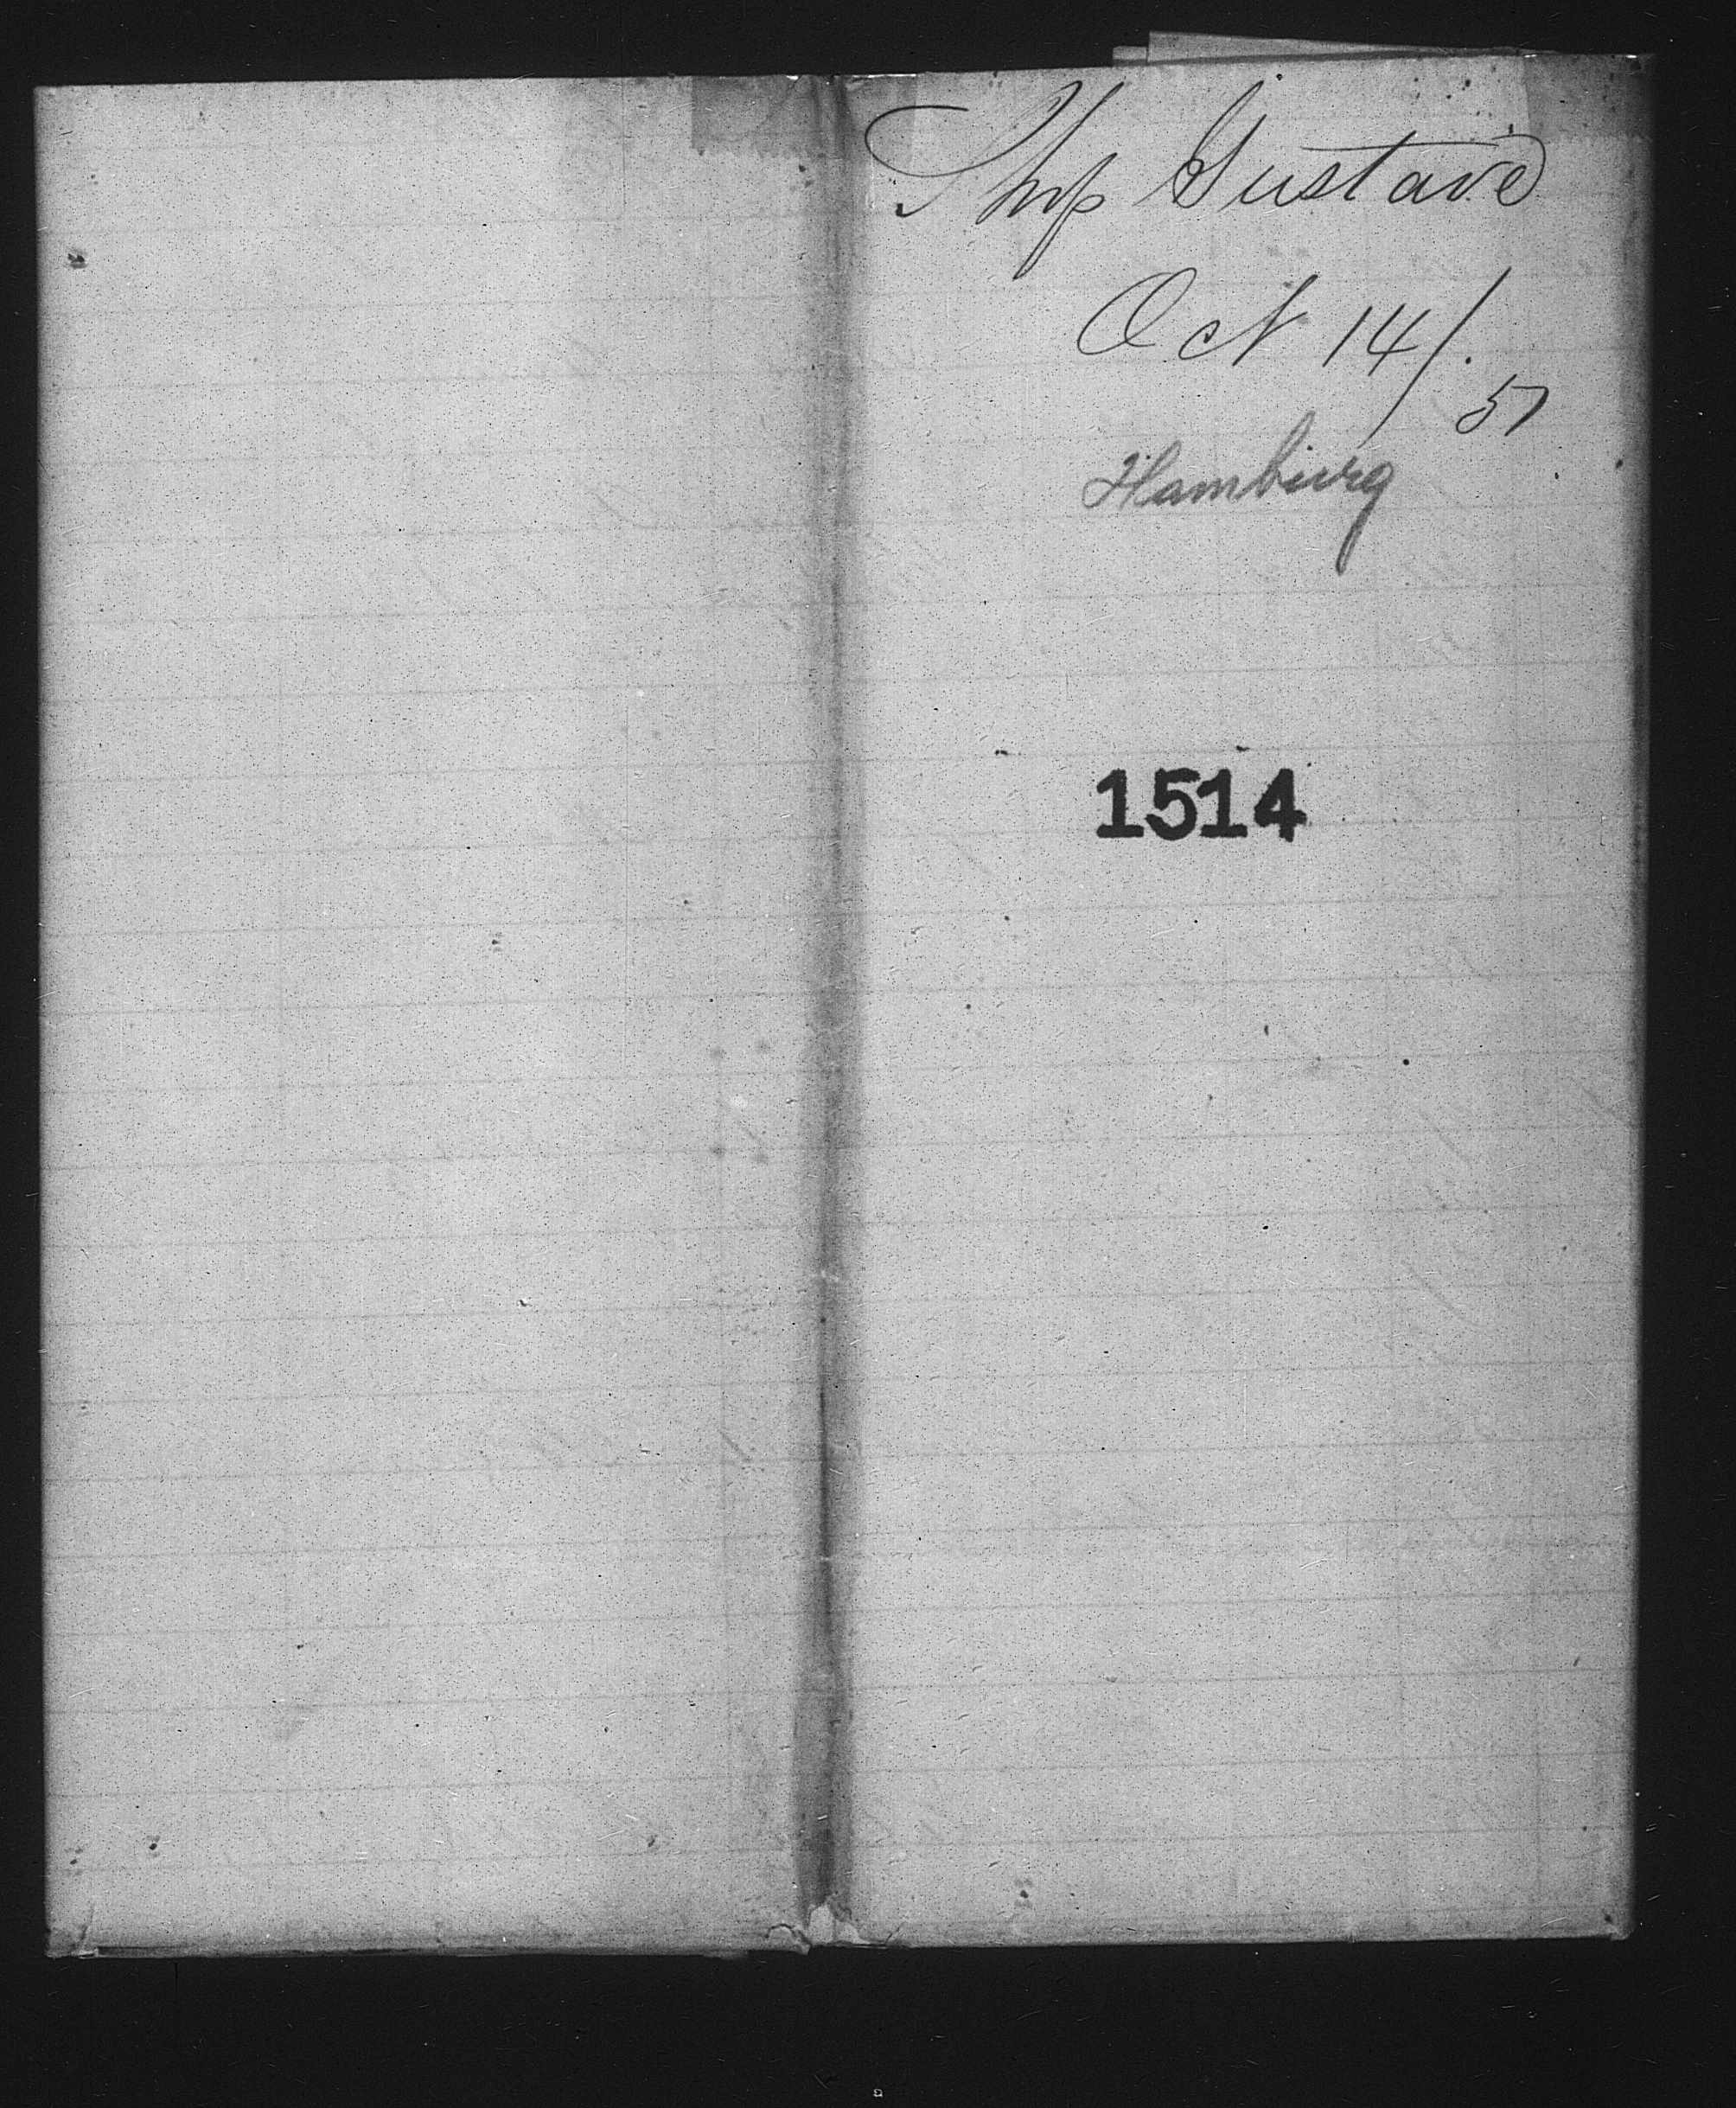 Ship Gustave
Oct 14/.
57
Hamburg
1514